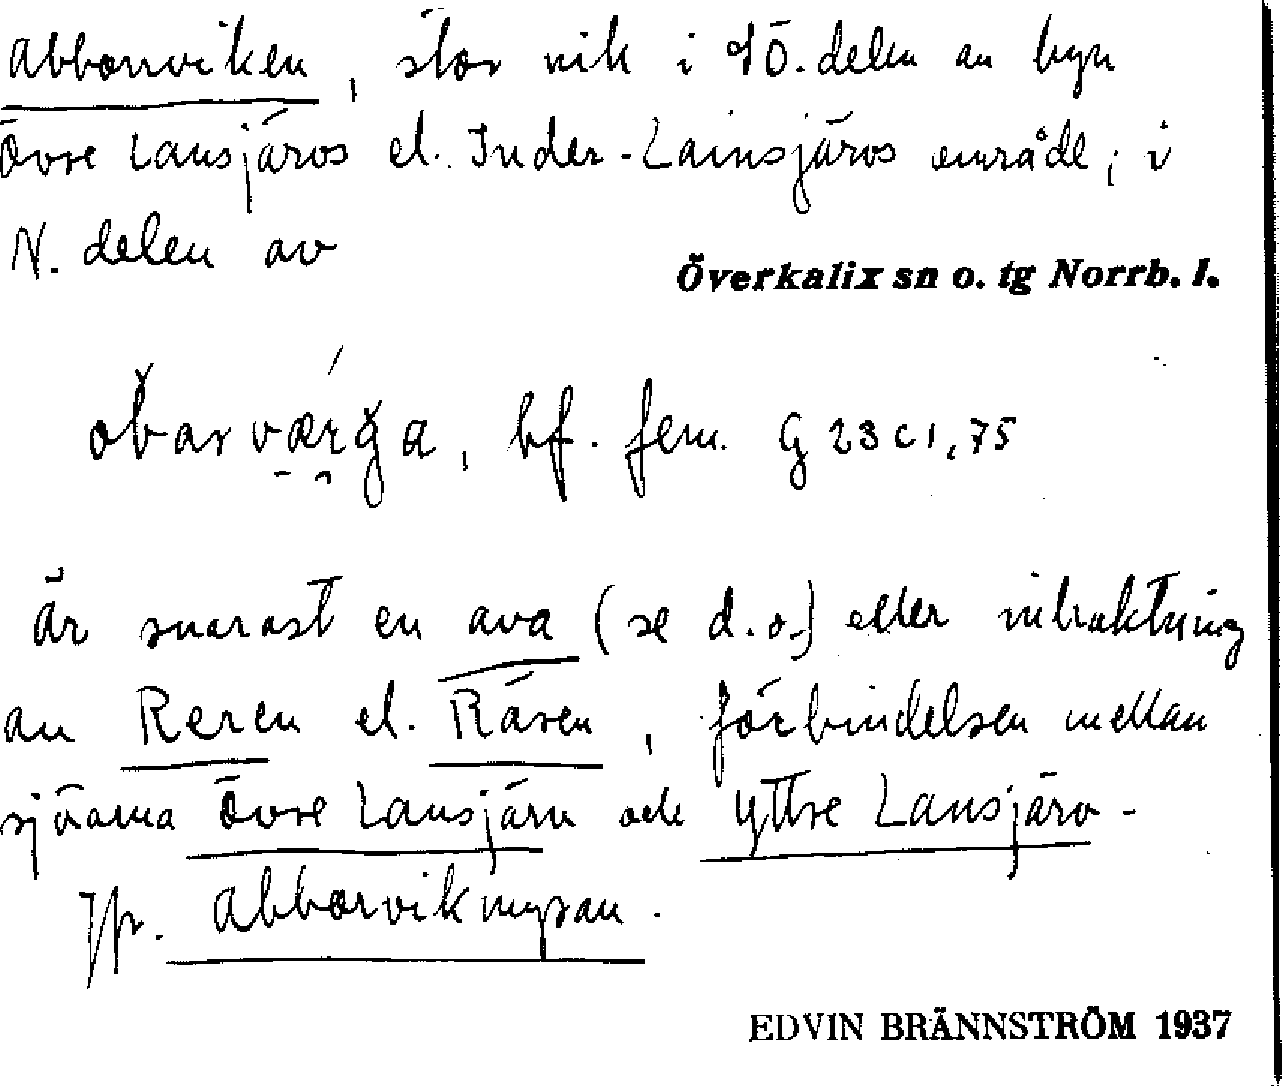 Abborrviken, stor vik i SÖ. delen av byn
Övre Lansjärvs el. Inder-Lainsjärvs område, i
N. delen av
Överkalix sn o. tg Norrb. l.
obarværga, bf. fem. G 23 c 1,75
är snarast en ava (se d.o.) eller utbuktning
av Reren el. Räven, förbindelsen mellan
sjöarna Övre Lansjärv och Yttre Lansjärv.
Jfr. Abborvikmyran.
EDVIN BRÄNNSTRÖM 1937